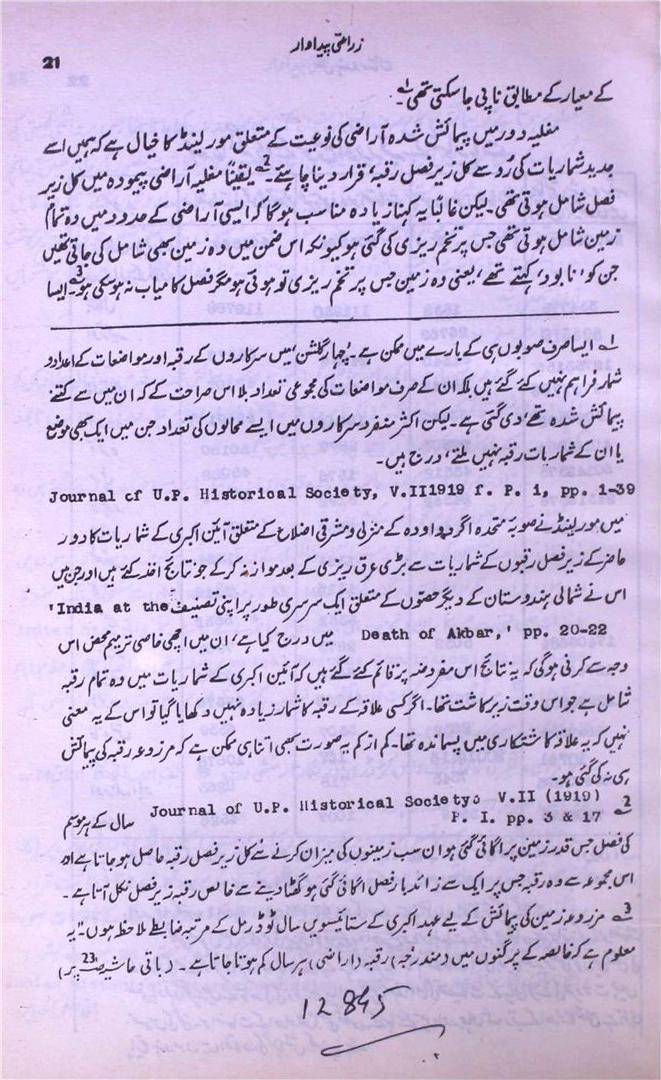 زراعتی پیداوار
21
کے معیار کے مطابق ناپی جا سکتی تھی۔1
مغلیہ دور میں پیمائش شدہ آراضی کی نوعیت کے متعلق مورلینڈ کا خیال ہے کہ ہمیں اسے
جدید شماریات کی رُو سے کل زیر فصل رقبہ، قرار دینا چاہئے2 یقیناً مغلیہ آراضی پیمودہ میں کل زیر
فصل شامل ہوتی تھی۔ لیکن غالباً یہ کہنا زیادہ مناسب ہوگا کہ ایسی آراضی کے حدود میں وہ تمام
زمین شامل ہوتی تھی جس پر تخم ریزی کی گئی ہو کیونکہ اس ضمن میں وہ زمین بھی شامل کی جاتی تھیں
جن کو 'نابود' کہتے تھے، یعنی وہ زمین جس پر تخم ریزی تو ہوئی ہو مگر فصل کامیاب نہ ہو سکی ہو۔3 ایسا
1 ایسا صرف صوبوں ہی کے بارے میں ممکن ہے۔ چہار گلشن، میں سرکاروں کے رقبہ اور مواضعات کے اعداد و
شمار فراہم نہیں کئے گئے ہیں بلکہ ان کے صرف مواضعات کی مجموعی تعداد بلا اس صراحت کے کہ ان میں سے کتنے
پیمائش شدہ تھے، دی گئی ہے۔ لیکن اکثر منفرد سرکاروں میں ایسے محالوں کی تعداد جن میں ایک بھی موضع
یا ان کے شماریات رقبہ نہیں ملتے، درج ہیں۔
Journal cf U.P. Historical Society, V.II1919 f. P. i, pp. 1-39
میں مورلینڈ نے صوبہ متحدہ آگرہ و اودھ کے منزلی و مشرقی اضلاع کے متعلق آئین اکبری کے شماریات کا دور
حاضر کے زیر فصل رقبوں کے شماریات سے بڑی عرق ریزی کے بعد موازنہ کر کے جو نتائج اخذ کئے ہیں اور جن میں
اس نے شمالی ہندوستان کے دیگر حصّوں کے متعلق ایک سرسری طور پر اپنی تصنیف 'India at the
Death of Akbar,' pp. 20-22 میں درج کیا ہے، ان میں اچھی خاصی ترمیم محض اس
وجہ سے کرنی ہوگی کہ یہ نتائج اس مفروضہ پر قائم کئے گئے ہیں کہ آئین اکبری کے شماریات میں وہ تمام رقبہ
شامل ہے جو اس وقت زیر کاشت تھا۔ اگر کسی علاقہ کے رقبہ کا شمار زیادہ نہیں دکھایا گیا تو اس کے یہ معنی
نہیں کہ یہ علاقہ کاشتکاری میں پسماندہ تھا۔ کم از کم یہ صورت بھی اتنا ہی ممکن ہے کہ مزروعہ رقبہ کی پیمائش
ہی نہ کی گئی ہو۔
2 Journal of U.P. Historical Society, V.II (1919)
P. I. pp. 3 & 17 سال کے ہر موسم
کی فصل جس قدر زمین پر اگائی گئی ہو ان سب زمینوں کی میزان کرنے سے کل زیر فصل رقبہ حاصل ہو جاتا ہے اور
اس مجموعہ سے وہ رقبہ جس پر ایک سے زائد بار فصل اگائی گئی ہو گھٹا دینے سے خالص رقبہ زیر فصل نکل آتا ہے۔
3 مزروعہ زمین کی پیمائش کے لیے عہد اکبری کے ستائیسویں سال ٹوڈرمل کے مرتبہ ضابطے ملاحظہ ہوں۔ "یہ
معلوم ہے کہ خالصہ کے پرگنوں میں (مندرجہ) رقبہ (اراضی) ہر سال کم ہوتا جاتا ہے۔ (باقی حاشیہ صفحہ 23 پر)
12845